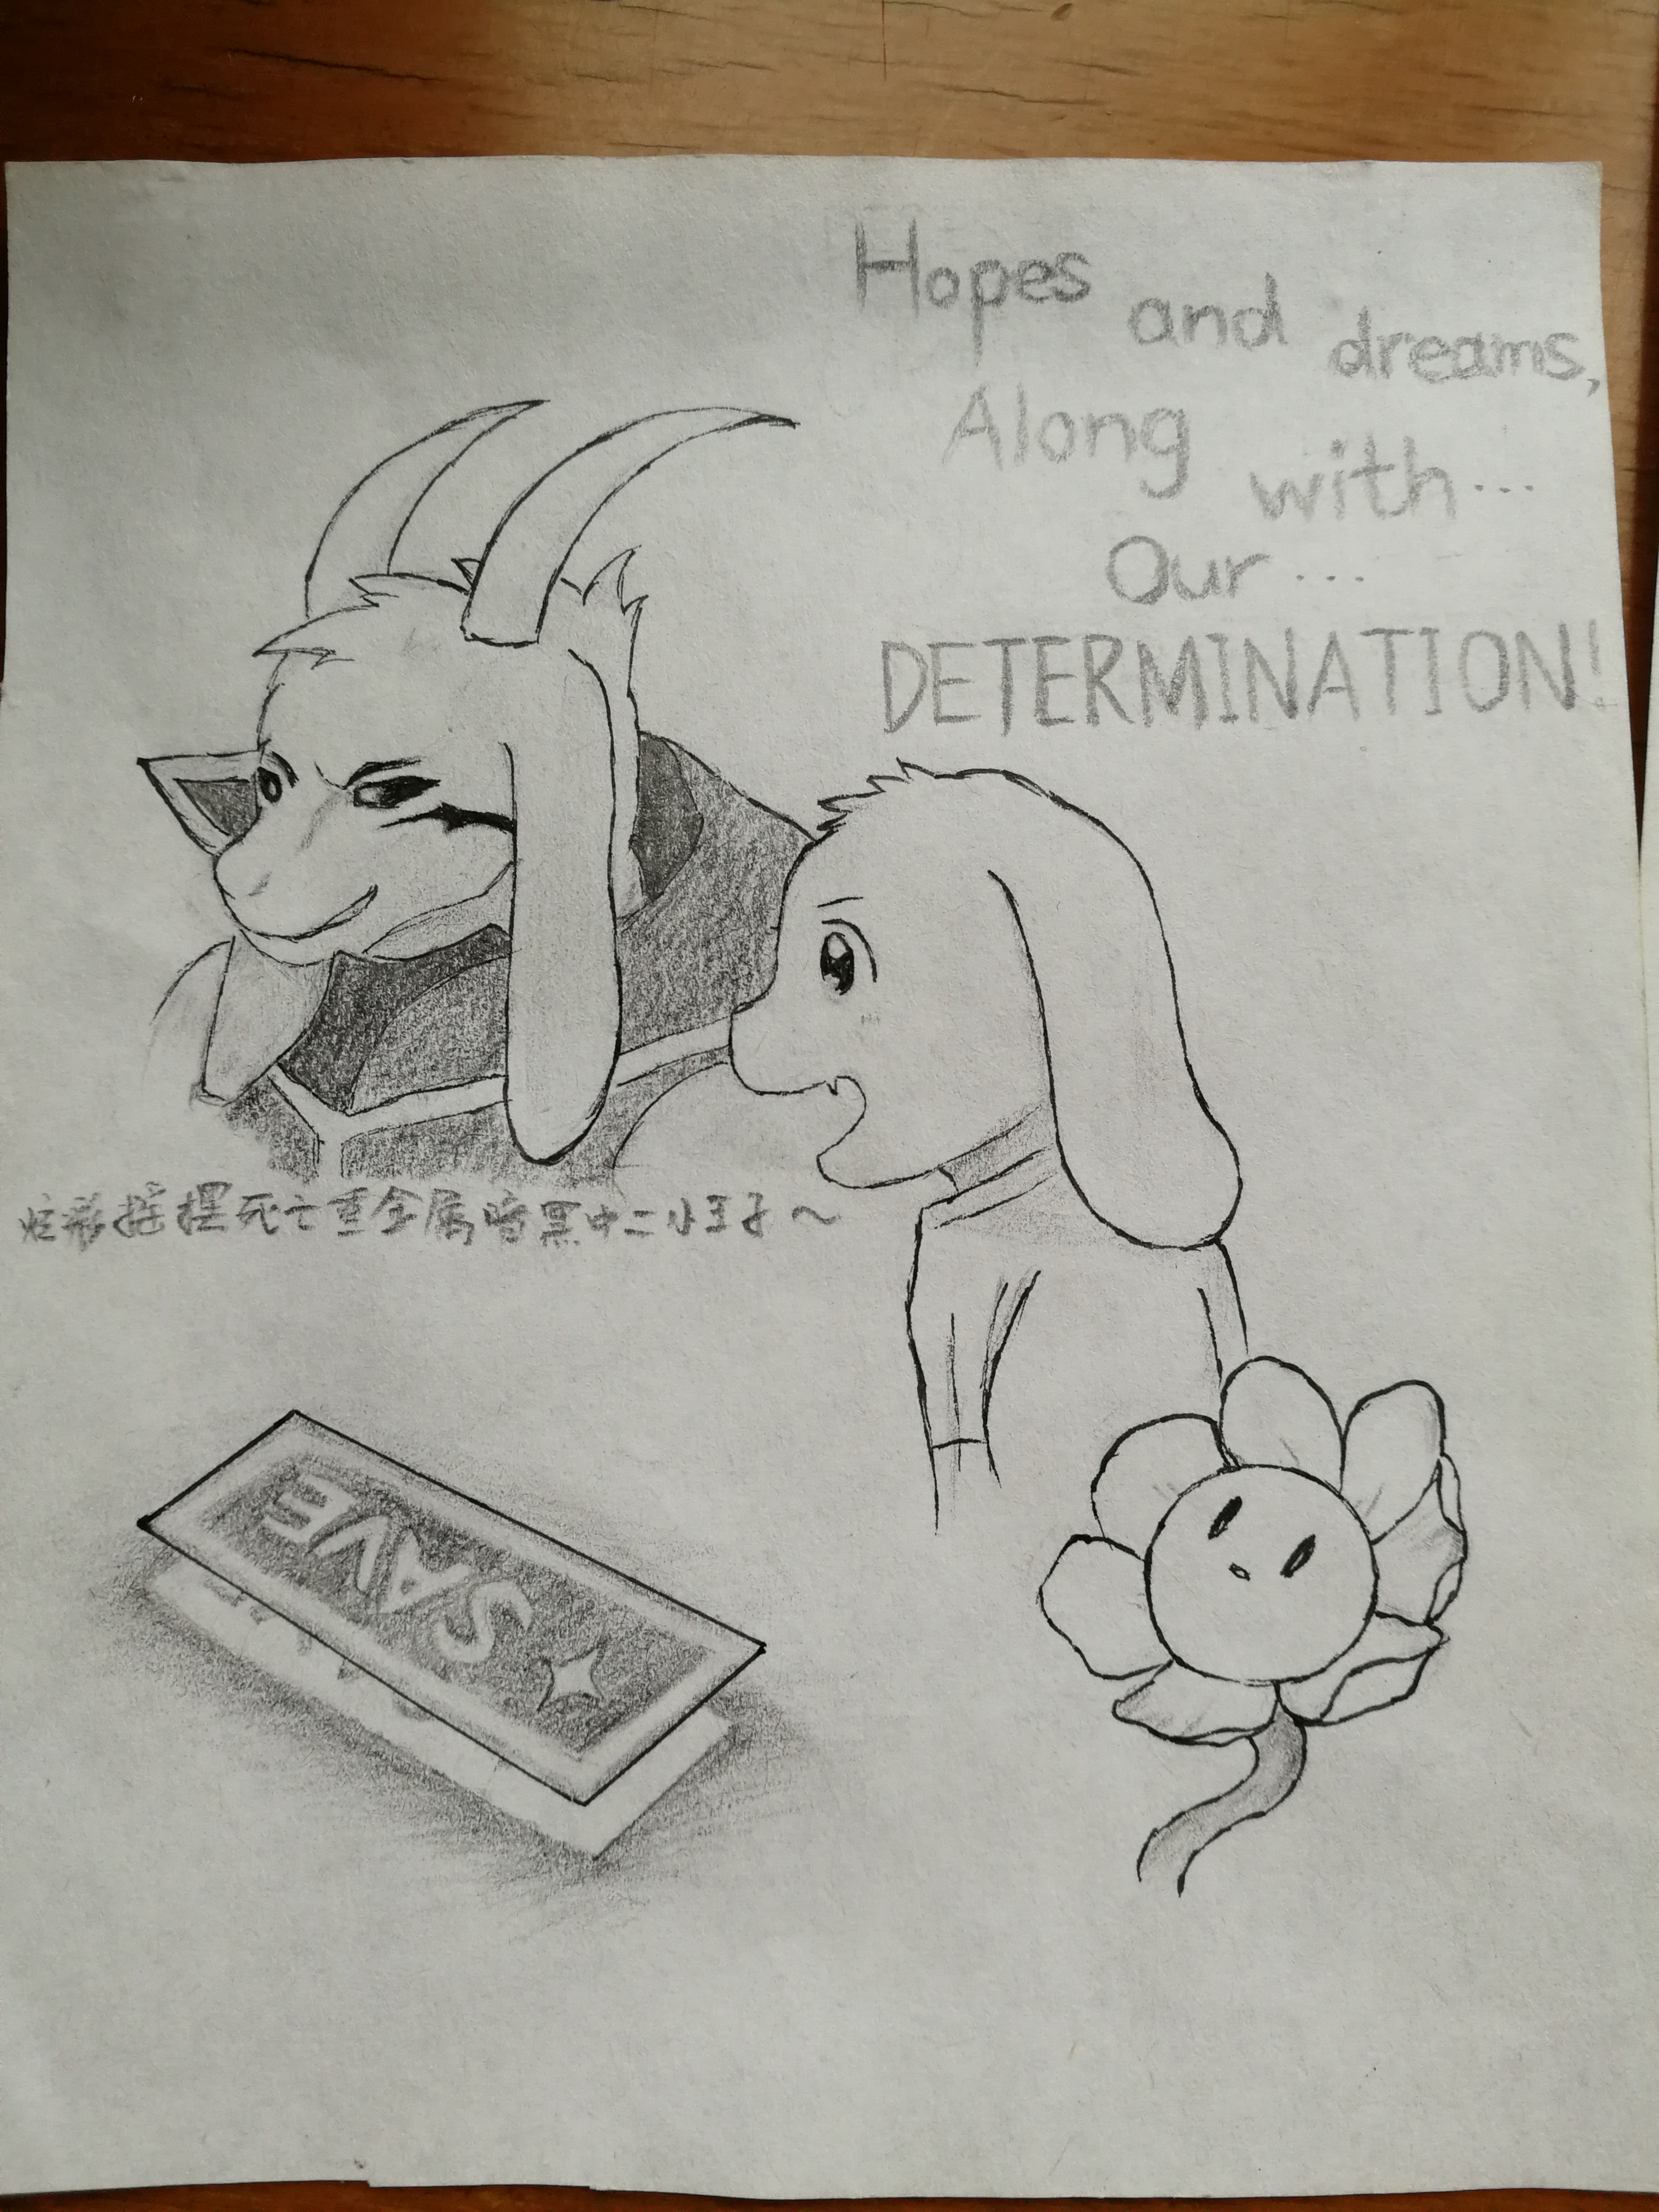 Hopes and dreams,
Along with...
Our...
DETERMINATION!
炫彩摇摆死亡重金属暗黑中二小王子～
SAVE